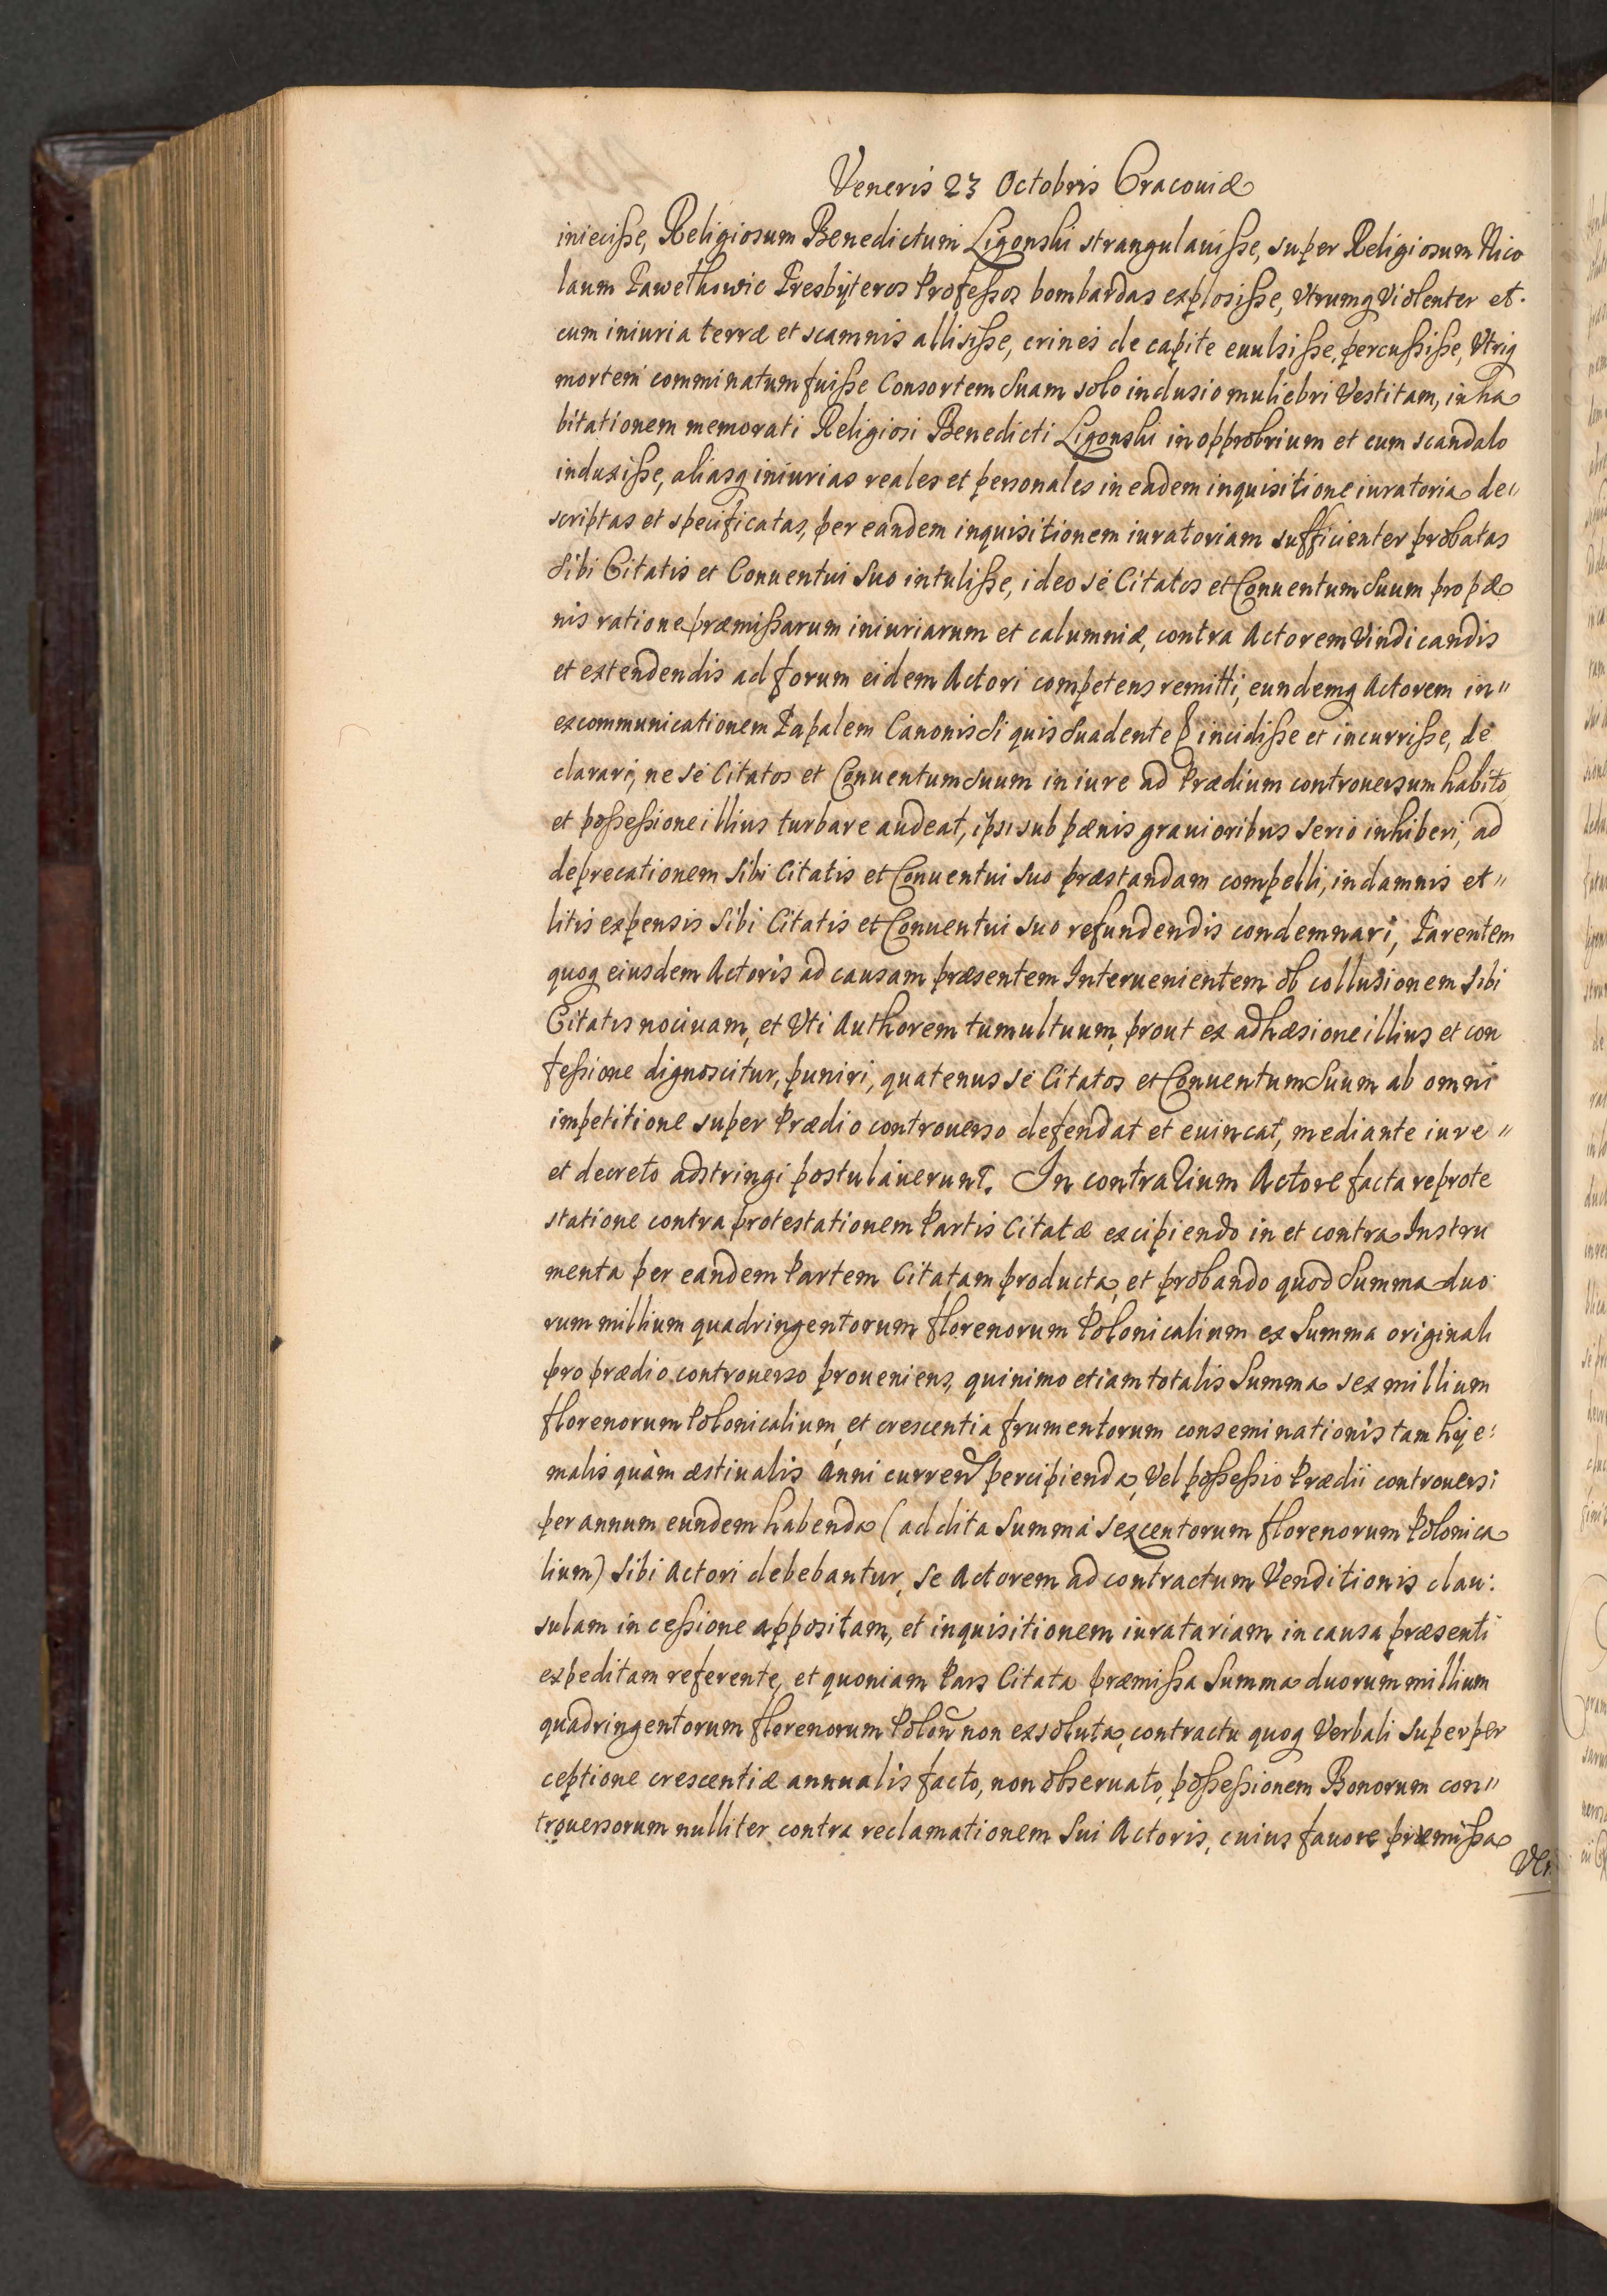 Veneris 23 Octobris Cracouiæ
iniecisse, Religiosum Benedictum Ligonski strangulauisse, super Religiosum Nico
laum Pawethowic Presbyteros Professos bombardas explosisse, Vtrumq Violenter et
cum iniuria terræ et scamnis allisisse, crines de capite euulsisse, percussisse, Vtriq
mortem comminatum fuisse Consortem Suam solo indusio muliebri Vestitam, in ha
bitationem memorati Religiosi Benedicti Ligonski in opprobrium et cum scandalo
induxisse, aliasq iniurias reales et personales in eadem inquisitione iuratoria de"
scriptas et specificatas, per eandem inquisitionem iuratoriam sufficienter probatas
Sibi Citatis et Conuentui Suo intulisse, ideo se Citatos et Conuentum Suum pro pæ
nis ratione præmissarum iniuriarum et calumniæ, contra Actorem Vindicandis
et extendendis ad forum eidem Actori competens remitti, eundemq Actorem in"
excommunicationem Papalem Canonis Si quis Suadente incidisse et incurrisse, de
clarari, ne se Citatos et Conuentum Suum in iure ad Prædium controuersum habito,
et possessione illius turbare audeat, ipsi sub pænis grauioribus serio inhiberi, ad
deprecationem Sibi Citatis et Conuentui Suo præstandam compelli, in damnis et"
litis expensis Sibi Citatis et Conuentui Suo refundendis condemnari, Parentem
quoq eiusdem Actoris ad causam præsentem Interuenientem ob collusionem Sibi
Citatis nociuam, et Vti Authorem tumultuum, prout ex adhæsione illius et con
fessione dignoscitur, puniri, quatenus se Citatos et Conuentum Suum ab omni
impetitione super Prædio controuerso defendat et euincat, mediante iure"
et decreto adstringi postulauerunt. In contrarium Actore facta reprote
statione contra protestationem Partis Citatæ excipiendo in et contra Instru
menta per eandem Partem Citatam producta, et probando quod Summa duo
rum millium quadringentorum florenorum Polonicalium ex Summa originali
pro prædio controuerso proueniens, quinimo etiam totalis Summa sex millium
florenorum Polonicalium, et crescentia frumentorum conseminationis tam hye:
malis quàm æstiualis Anni curren percipienda, Vel possessio Prædii controuersi
per annum eundem habenda (addita Summa sexcentorum florenorum Polonica
lium) Sibi Actori debebantur, Se Actorem ad contractum Venditionis clau:
sulam in cessione appositam, et inquisitionem iuratariam in causa præsenti
expeditam referente, et quoniam Pars Citata præmissa Summa duorum millium
quadringentorum florenorum Polon non exsoluta, contractu quoq Verbali super per
ceptione crescentiæ annualis facto, non obseruato, possessionem Bonorum con"
trouersorum nulliter contra reclamationem Sui Actoris, cuius fauore præmissa